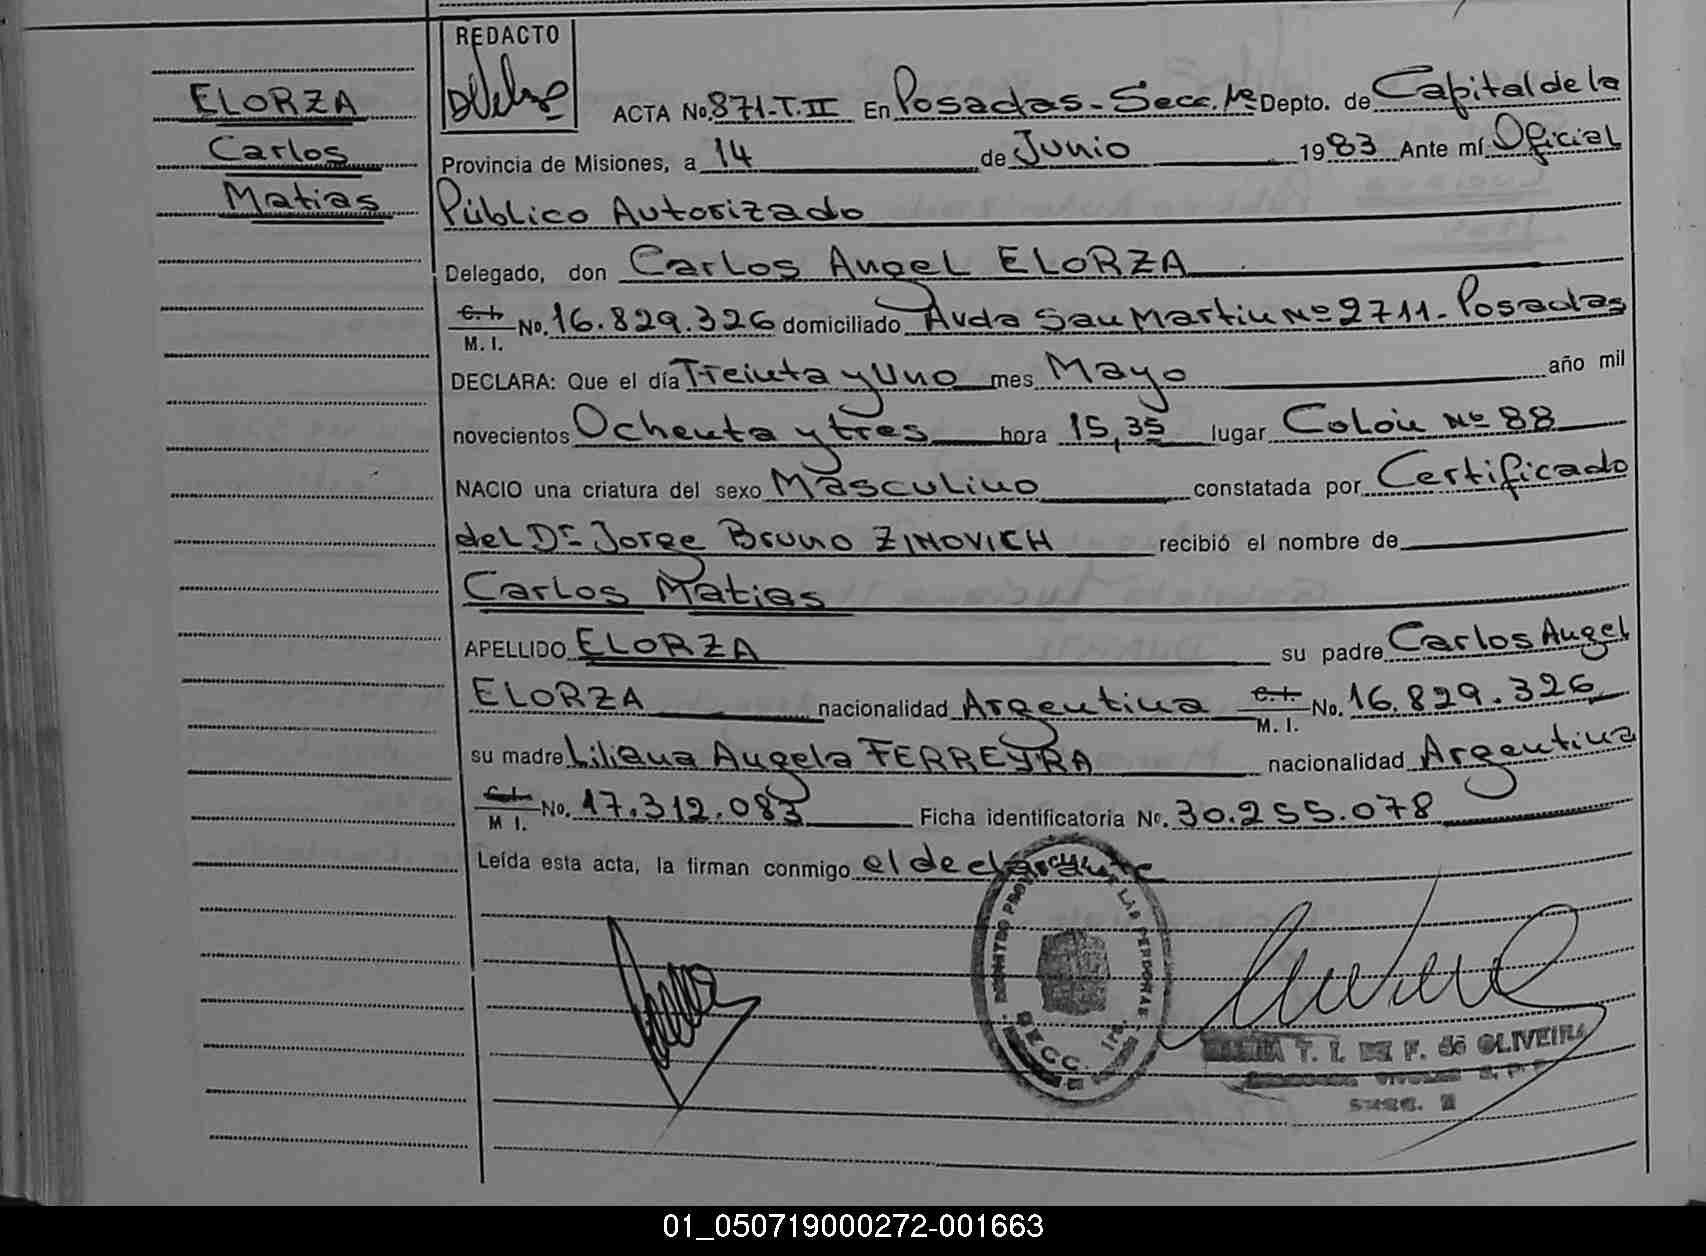 REDACTO
ELORZA
Carlos
Matias
ACTA No. 871-T.II En Posadas - Secc. 1ª Depto. de Capital de la
Provincia de Misiones, a 14 de Junio 1983 Ante mí Oficial
Público Autorizado
Delegado, don Carlos Angel ELORZA
C.I. M. I. No. 16.829.326 domiciliado Avda San Martin Nº 2711 - Posadas
DECLARA: Que el día Treinta y Uno mes Mayo año mil
novecientos Ochenta y tres hora 15,35 lugar Colón Nº 88
NACIO una criatura del sexo Masculino constatada por Certificado
del Dr Jorge Bruno ZINOVICH recibió el nombre de
Carlos Matias
APELLIDO ELORZA su padre Carlos Angel
ELORZA nacionalidad Argentina C.I. M. I. No. 16.829.326
su madre Liliana Angela FERREYRA nacionalidad Argentina
C.I. M I. No. 17.312.083 Ficha identificatoria No. 30.255.078
Leída esta acta, la firman conmigo el declarante
LAS PERSONAS
SECC. 1ra.
T. I. DE F. de OLIVEIRA
SECC.
01_050719000272-001663